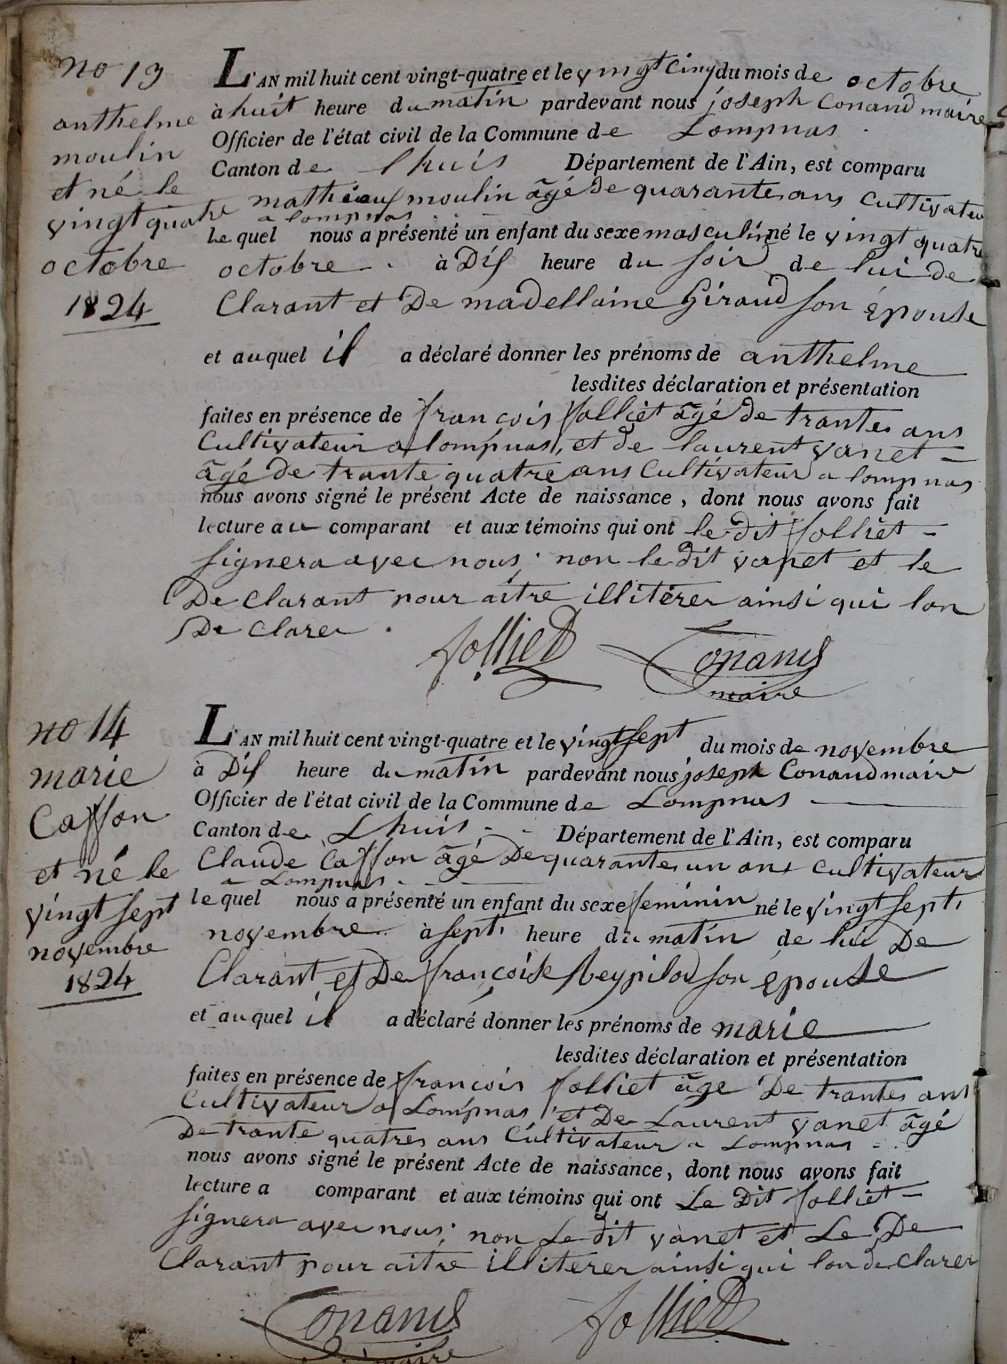 no 13
anthelme
moulin
et né le
vingt quatre
octobre
1824
L'AN mil huit cent vingt-quatre et le vingt cinq du mois de octobre
à huit heure du matin pardevant nous joseph Conand maire
Officier de l'état civil de la Commune de Lompnas
Canton de Lhuis Département de l'Ain, est comparu
mathieux moulin âgé de quarantes ans cultivateur
a lompnas
le quel nous a présenté un enfant du sexe masculin né le vingt quatre
octobre à Dis heure du soir de lui de
Clarant et De madellaine Giraud son épouse
et auquel il a déclaré donner les prénoms de anthelme
lesdites déclaration et présentation
faites en présence de françois folliet âgé de trantes ans
Cultivateur a lompnas, et de laurent vanet
âgé de trante quatre ans Cultivateur a lompnas
nous avons signé le présent Acte de naissance, dont nous avons fait
lecture au comparant et aux témoins qui ont le dit folliet
signera avec nous; non le dit vanet et le
De Clarant pour aitre illiterer ainsi qui lon
De Clarer.
folliet Conand
maire
no 14
marie
Casson
et né le
vingt sept
novembre
1824
L'AN mil huit cent vingt-quatre et le vingt sept du mois de novembre
à Dis heure du matin pardevant nous joseph Conand maire
Officier de l'état civil de la Commune de Lompnas
Canton de Lhuis Département de l'Ain, est comparu
Claude Casson âgé De quarantes un ans cultivateur
a Lompnas
le quel nous a présenté un enfant du sexe feminin né le vingt sept
novembre à sept heure du matin de lui De
Clarant et De françoise son épouse
et auquel il a déclaré donner les prénoms de marie
lesdites déclaration et présentation
faites en présence de françois folliet âge De trantes ans
Cultivateur a Lompnas et De Laurent vanet âgé
De trante quatres ans Cultivateur a Lompnas
nous avons signé le présent Acte de naissance, dont nous avons fait
lecture a comparant et aux témoins qui ont Le Dit folliet
signera avec nous; non Le dit vanet et Le De
Clarant pour aitre illiterer ainsi qui lon de clarer
Conand folliet
maire